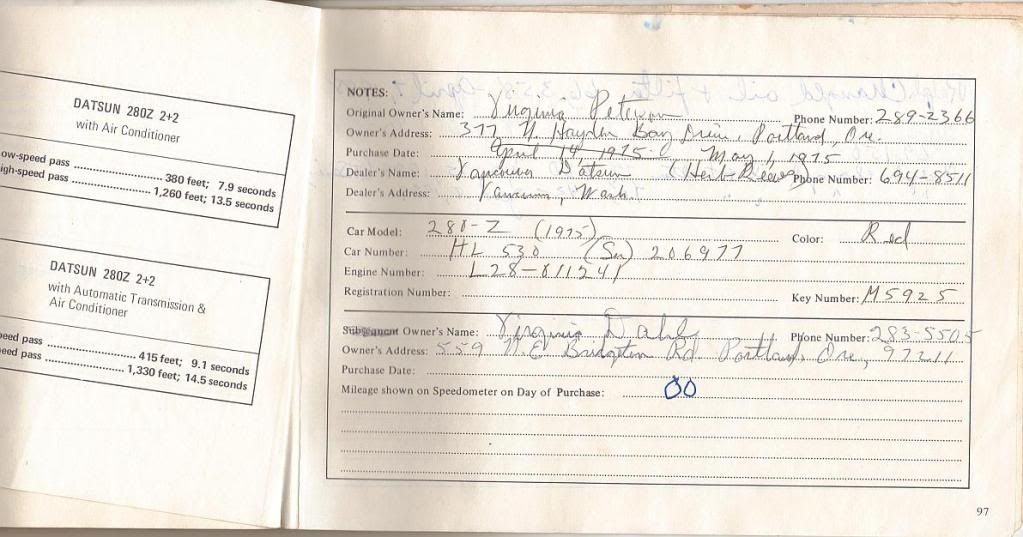 DATSUN 280Z 2+2
with Air Conditioner
ow-speed pass ........ 380 feet; 7.9 seconds
igh-speed pass ........ 1,260 feet; 13.5 seconds
DATSUN 280Z 2+2
with Automatic Transmission &
Air Conditioner
peed pass ........ 415 feet; 9.1 seconds
eed pass ........ 1,330 feet; 14.5 seconds
NOTES:
Original Owner's Name: Virginia Peterson Phone Number: 289-2366
Owner's Address: 377 N. Hayden Bay Drive, Portland, Ore.
Purchase Date: April 14, 1975 May 1, 1975
Dealer's Name: Vancouver Datsun (Herb Reeves) Phone Number: 694-8511
Dealer's Address: Vancouver, Wash.
Car Model: 280-Z (1975) Color: Red
Car Number: HL S30 (Ser) 206977
Engine Number: L28-811241
Registration Number: Key Number: M5925
Subsequent Owner's Name: Virginia Dahl Phone Number: 283-5505
Owner's Address: 559 N.E. Bridgeton Rd. Portland, Ore, 97211
Purchase Date:
Mileage shown on Speedometer on Day of Purchase: 00
97